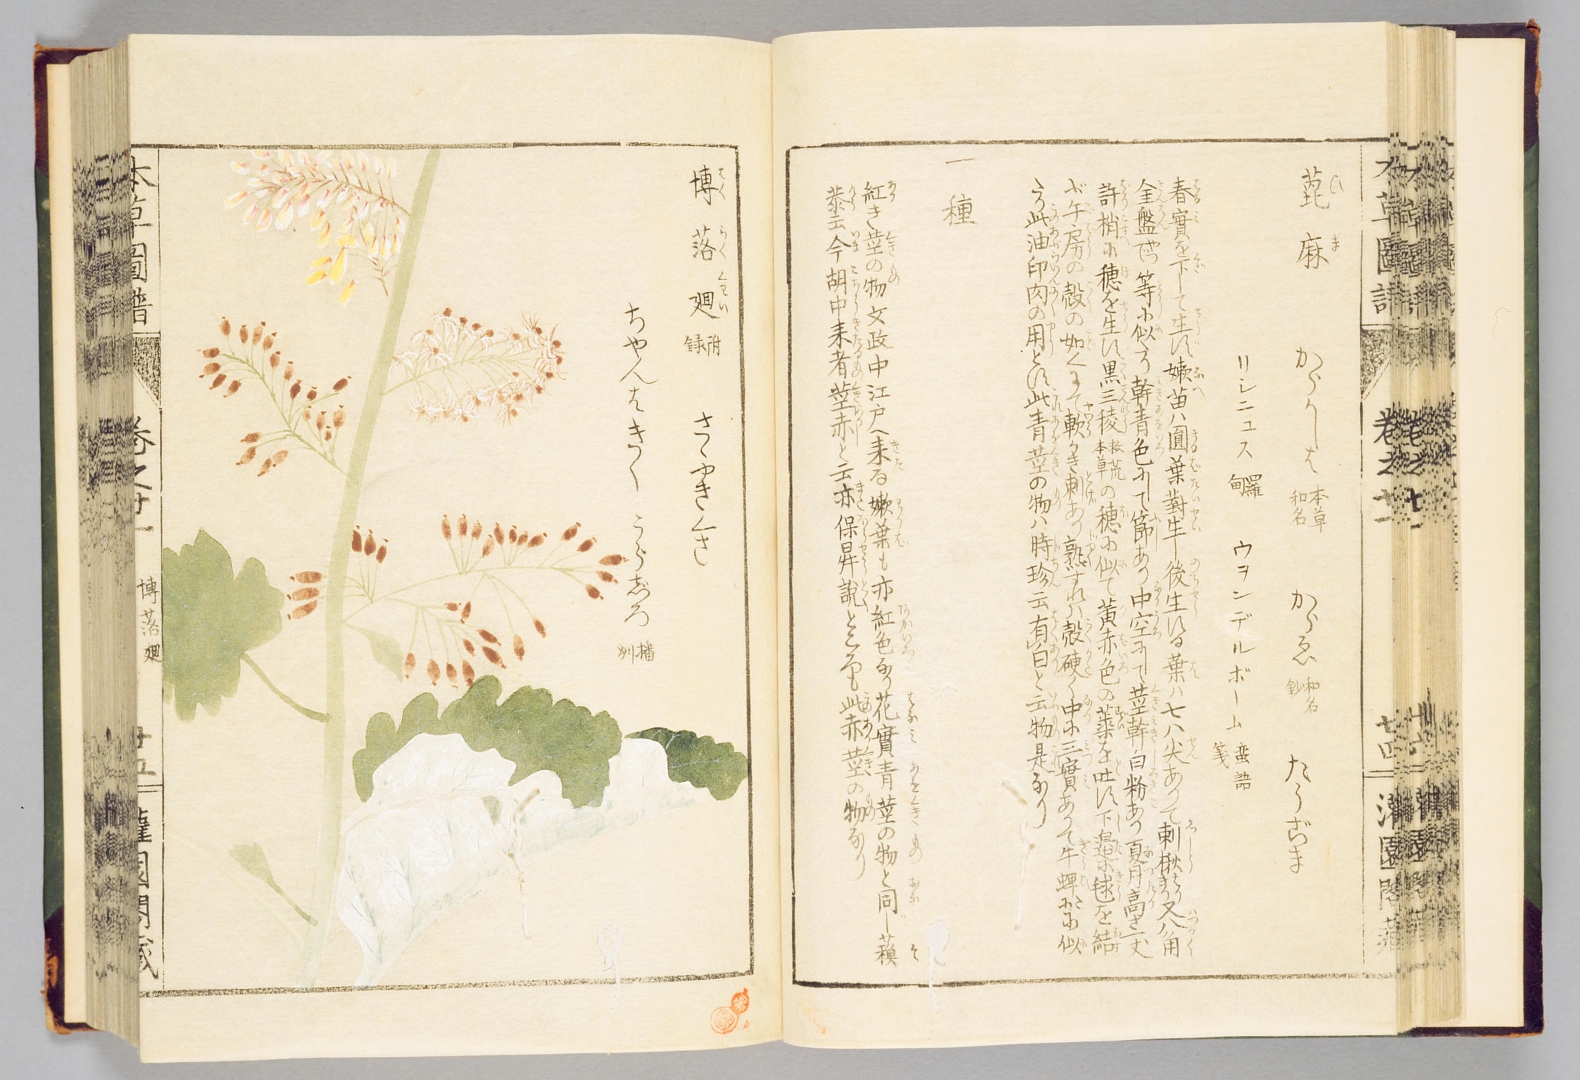 蓖麻 からしは 本草和名 からゑ 和名鈔 たうごま
リシニュス 羅甸 ウヲンデルボーム 蛮語箋
春實を下して生ず嫩苗ハ圓葉對生し後生ずる葉ハ七八尖ありて刺楸より又八角
金盤 等に似より幹青色にて節あり中空にて莖幹白粉あり夏月高さ丈
許梢に穂を生ず黒三稜 救荒本草 の穂に似て黄赤色の蘂を吐ず下邉に毬を結
ぶ午房の殻の如くにて軟き刺あり熟すれハ殻硬く中に三實ありて牛蜱に似
より此油印肉の用とす此青莖の物ハ時珍云有白と云物是なり
一種
紅き莖の物文政中江戸へ来る嫩葉も亦紅色なり花實青莖の物と同し蘓
恭云今胡中来者莖赤と云亦保昇説ところも此赤莖の物なり
本草圖譜 卷之廿一 廿四
博落廻 附録 さゝやきくさ
ちやんはきく うらじろ 播州
本草圖譜 卷之廿一 博落廻 廿五